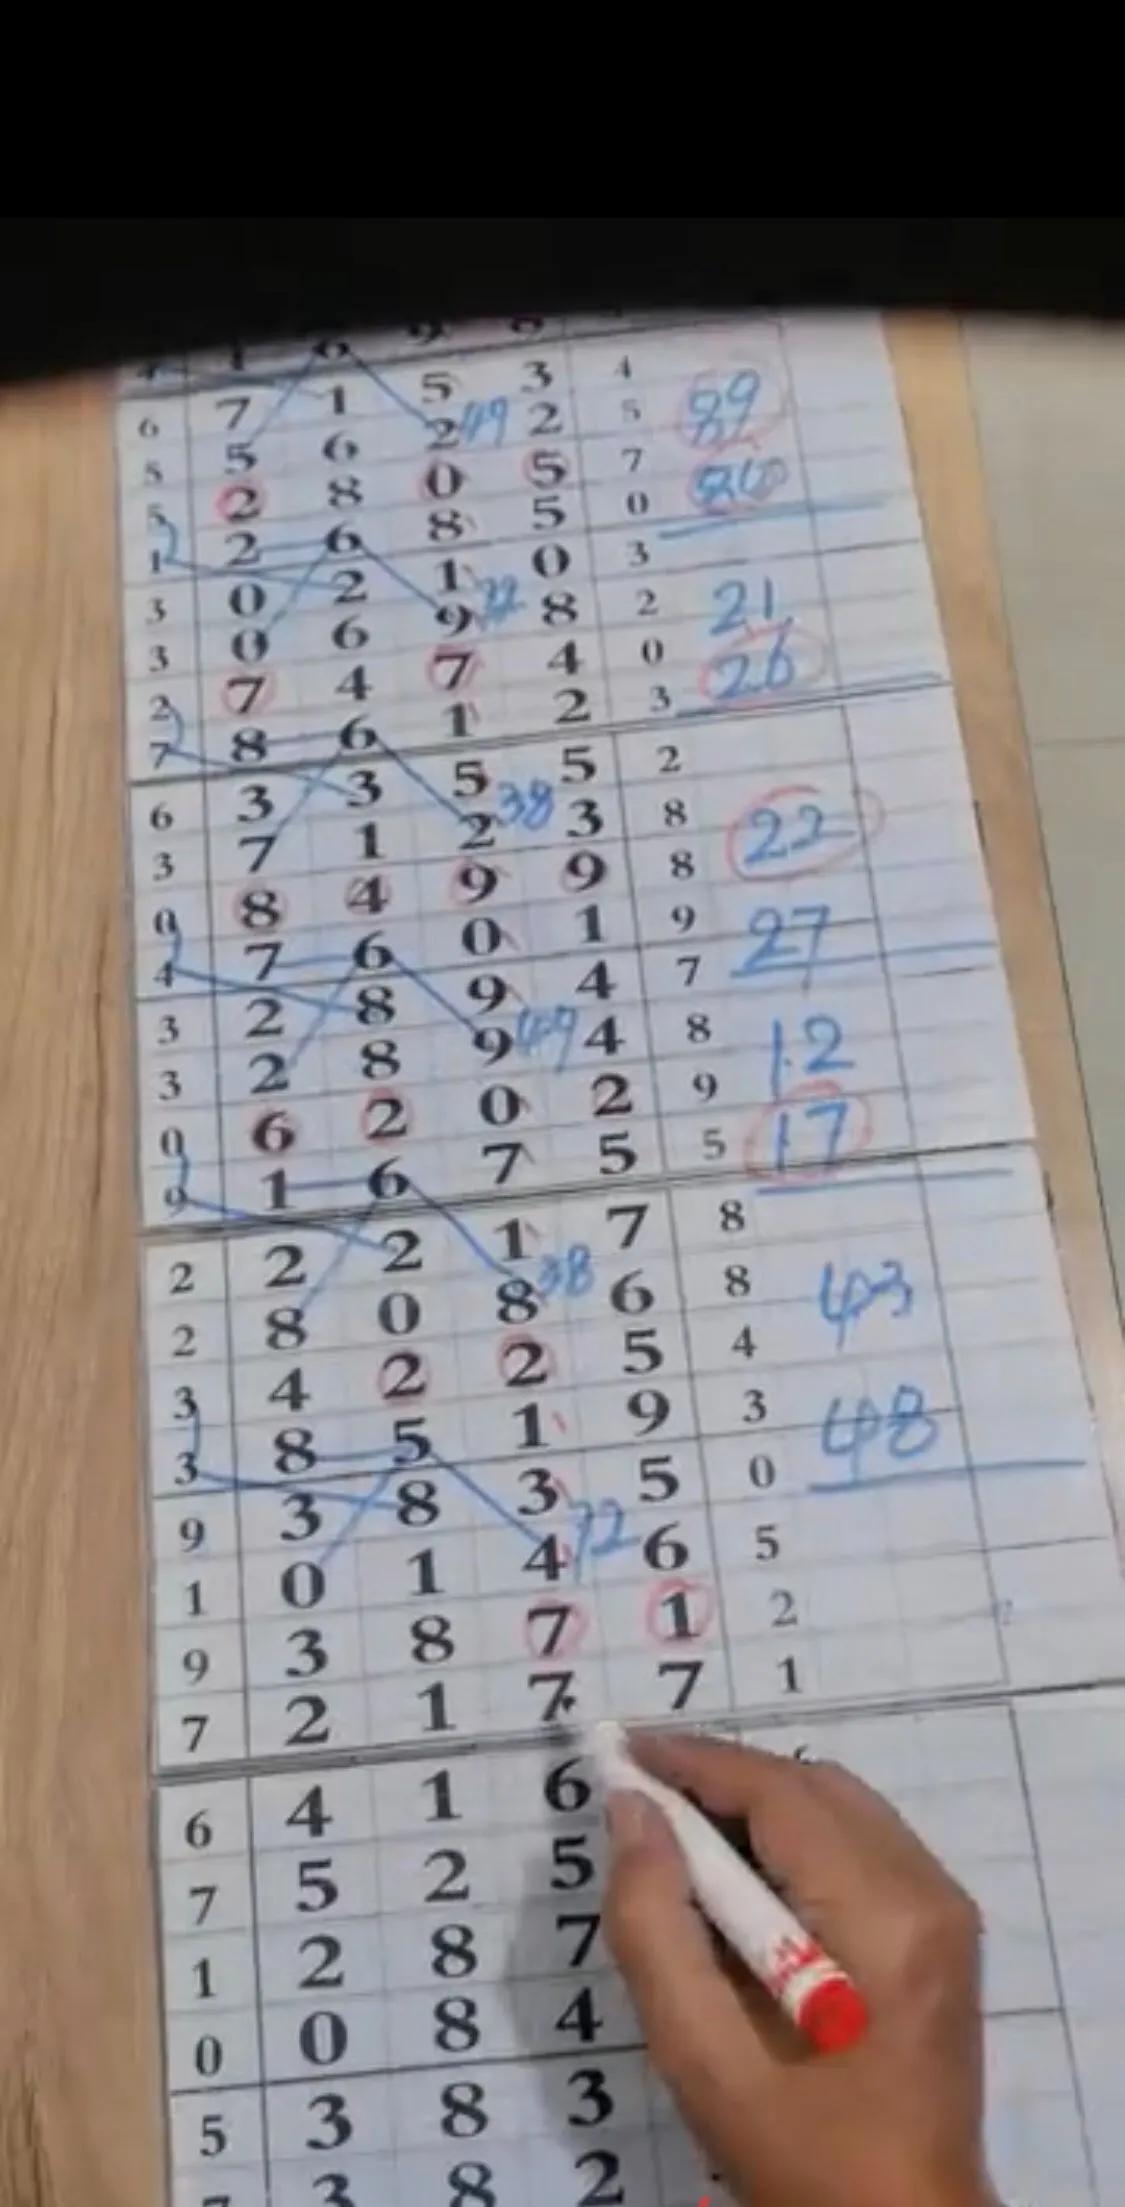 7 1 5 3 4
6 5 6 2 49 2 5 89
5 2 8 0 5 7
5 2 6 8 5 0
1 0 2 1 0 3
3 0 6 9 72 8 2 21
3 7 4 7 4 0 26
2 8 6 1 2 3
7 3 3 5 5 2
6 7 1 2 38 3 8 22
3 8 4 9 9 8
0 7 6 0 1 9 27
4 2 8 9 4 7
3 2 8 9 49 4 8 12
3 6 2 0 2 9
0 1 6 7 5 5 17
9 2 2 1 7 8
2 8 0 8 38 6 8 43
2 4 2 2 5 4
3 8 5 1 9 3 48
3 3 8 3 5 0
9 0 1 4 72 6 5
1 3 8 7 1 2
9 2 1 7 7 1
7 4 1 6
6 5 2 5
7 2 8 7
1 0 8 4
0 3 8 3
5 3 8 2